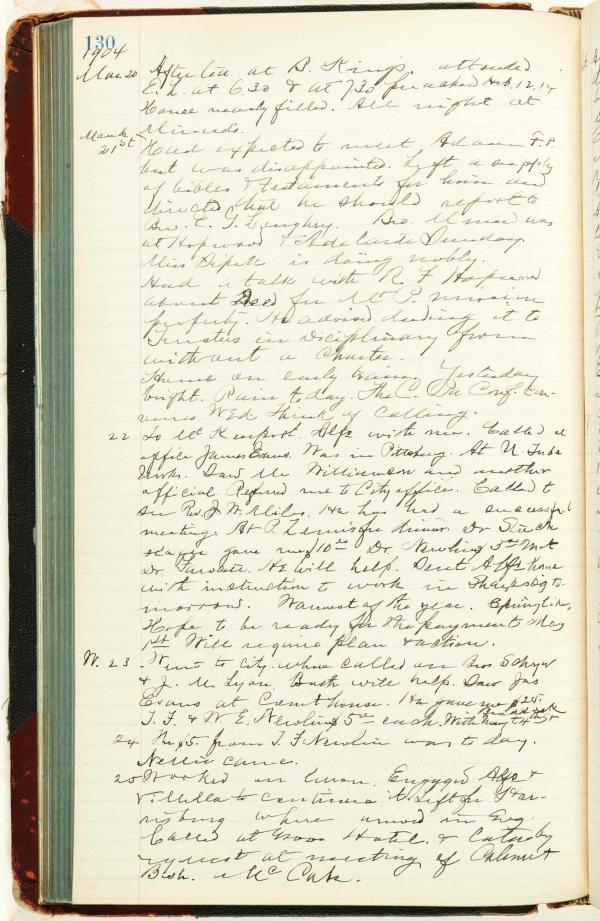 130
1904
Mar 20 After tea at B. Kings. attended
E. L. at 6.30 & at 7.30 preached Heb. 12.14
House nearly filled. All night at
March Minerds.
21st Had expected to meet Adams F.P.
but was disappointed. Left a supply
of bibles & testaments for him and
directed that he should report to
Bro. C. G. Langhry. Bro. was
at Hopwood & Adelaide Sunday.
Miss is doing nobly.
Had a talk with R. F. Hopwood
about Deed for M. P. mission
property. He advised deeding it to
Trustees in Diciplinary form
without a Charter.
Home on early train. Yesterday
bright. Rain today. The C. Conf. con-
venes Wed. Think of calling.
22 To McKeesport. Alfs with me. Called at
office James Evans. Was in Pittsburg. At N. Tube
Works. Saw Mr Williamson and another
official. Refered me to City office. Called to
see Rev. J. W. Miles. He has had a successful
meeting. At P. for dinner. Dr
gave me 10.00 Dr. Newlins 5.00
Dr . He will help. Sent Alfs home
with instruction to work in Sharpsbg to-
morrow. Warmest of the year. Springlike,
Hope to be ready for the payment May
1st. Will require plan & action.
W. 23. Went to City where called on Bro
& J. M. Lyon. Both will help. Saw Jas
Evans at Courthouse. He gave me $25.
T. F. & W. E. Newlins 5.00 each. With
24 The $5. from T. F. Newlin was to day.
Nellie came.
25 Worked on lawn. Engaged Alfs &
to continue it. Left for Har-
risburg where arrived in Eveg.
Called at Hotel. & Later by
request at meeting of
Bish. McCabe.